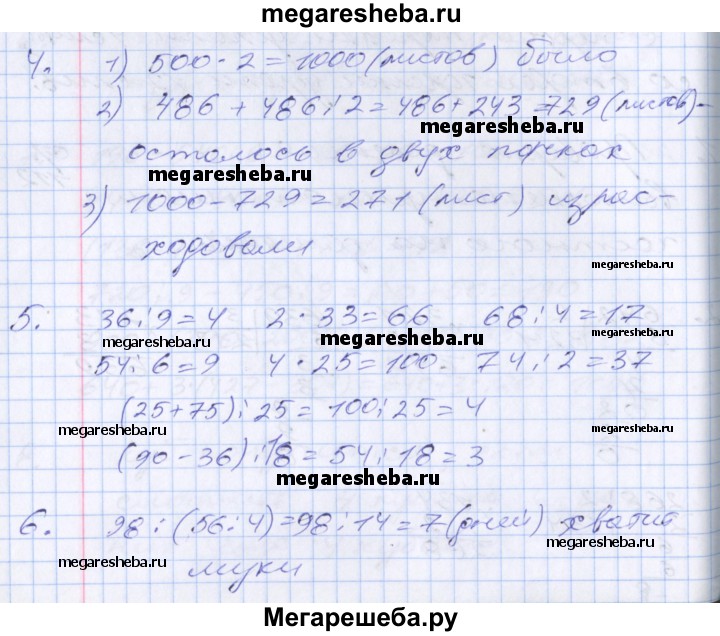 megaresheba.ru
4. 1) 500 · 2 = 1000 (листов) было
2) 486 + 486 : 2 = 486 + 243 = 729 (листов) -
megaresheba.ru
осталось в двух пачках
megaresheba.ru
3) 1000 - 729 = 271 (лист) израс-
ходовали
megaresheba.ru
5. 36 : 9 = 4 2 · 33 = 66 68 : 4 = 17
megaresheba.ru megaresheba.ru megaresheba.ru
54 : 6 = 9 4 · 25 = 100. 74 : 2 = 37
(25 + 75) : 25 = 100 : 25 = 4
megaresheba.ru megaresheba.ru
(90 - 36) : 18 = 54 : 18 = 3
megaresheba.ru
6. 98 : (56 : 4) = 98 : 14 = 7 (дней) хватит
megaresheba.ru megaresheba.ru
муки
Мегарешеба.ру